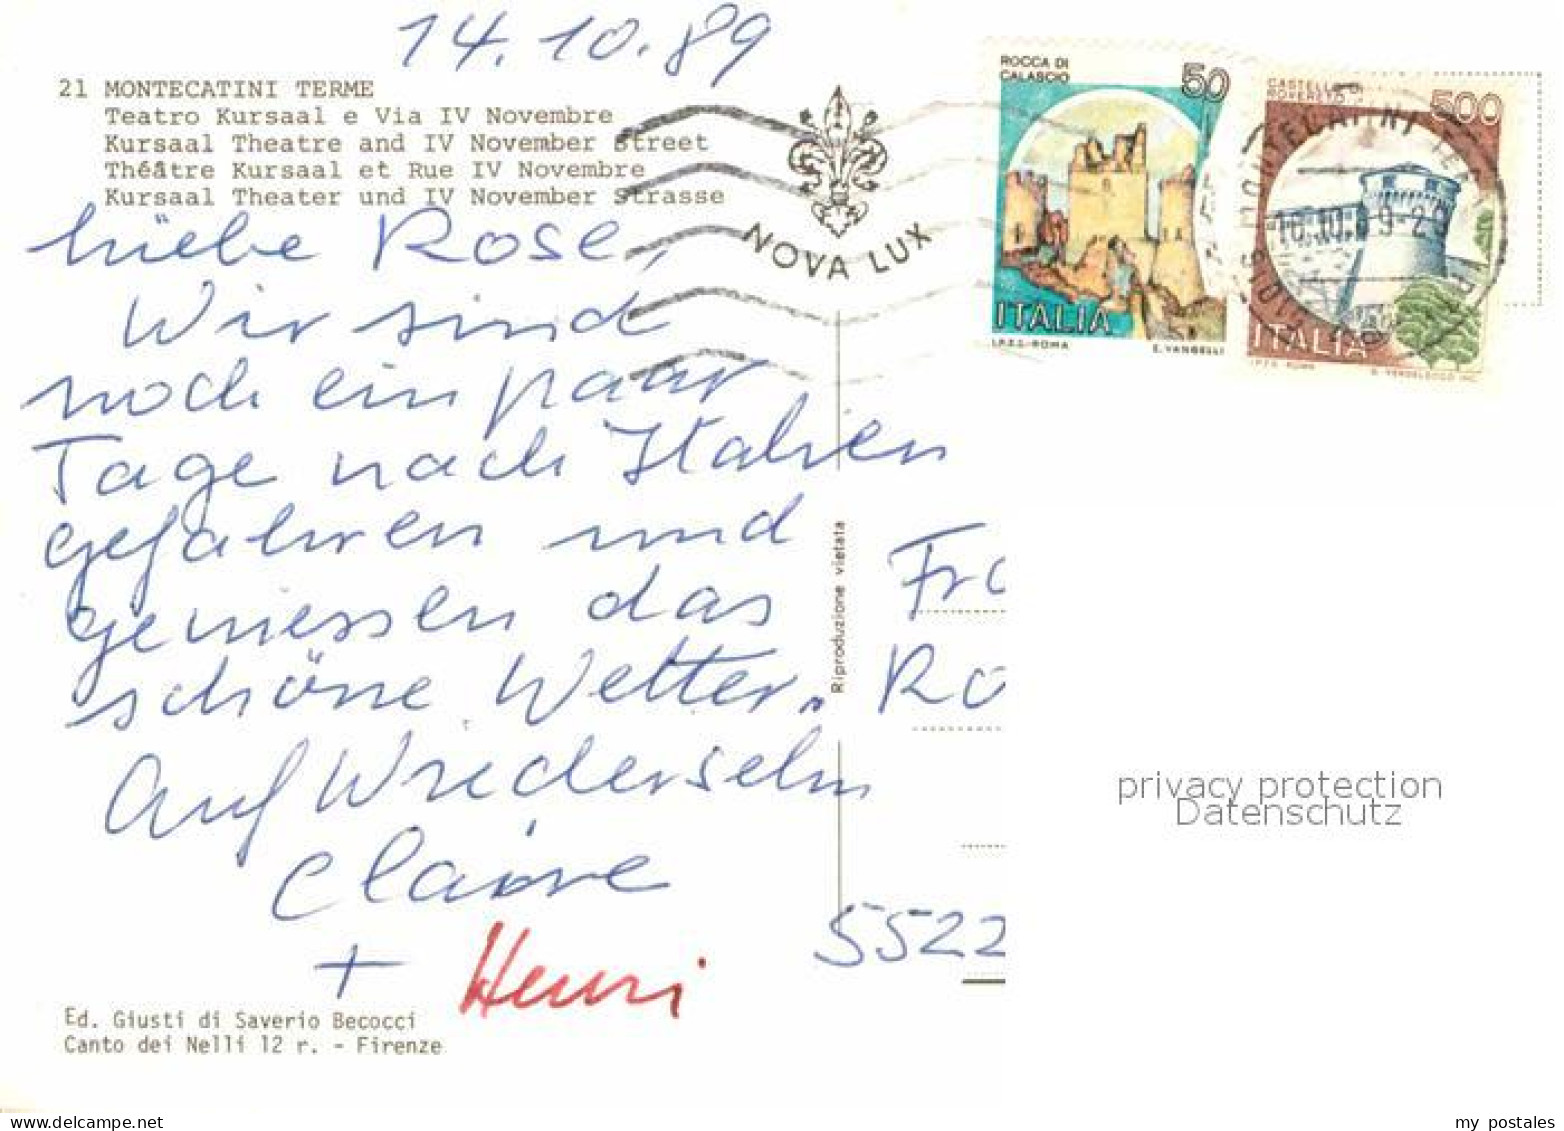 14.10.89
21 MONTECATINI TERME
Teatro Kursaal e Via IV Novembre
Kursaal Theatre and IV November Street
Théâtre Kursaal et Rue IV Novembre
Kursaal Theater und IV November Strasse
NOVA LUX
ROCCA DI
CALASCIO
50
ITALIA
I.P.Z.S.-ROMA E. VANGELLI
CASTELLO DI
ROVERETO
500
ITALIA
I.P.Z.S. ROMA
MONTECATINI TERME
16.10.89-20
Liebe Rose,
Wir sind
noch ein paar
Tage nach Italien
gefahren und
geniessen das
schöne Wetter.
Auf Wiedersehn
Claire
+ Henri
Riproduzione vietata
Fra
Ro
5522
privacy protection
Datenschutz
Ed. Giusti di Saverio Becocci
Canto dei Nelli 12 r. - Firenze
my postales